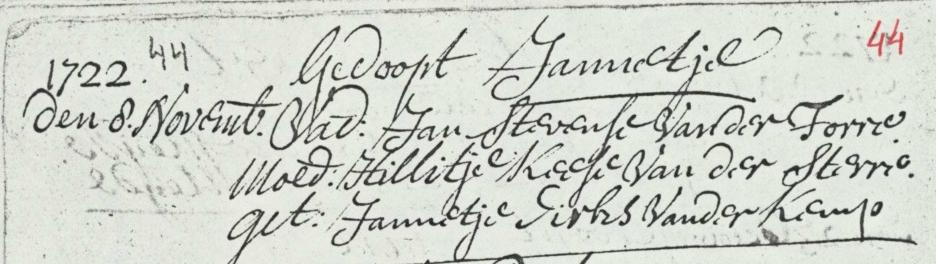 44 44
1722. Gedoopt Jannetje
den 8. Novemb. Vad: Jan Stevense Van der Torre.
Moed: Hillitje Keese Van der Sterre.
get: Jannetje Dirks Van der Kemp